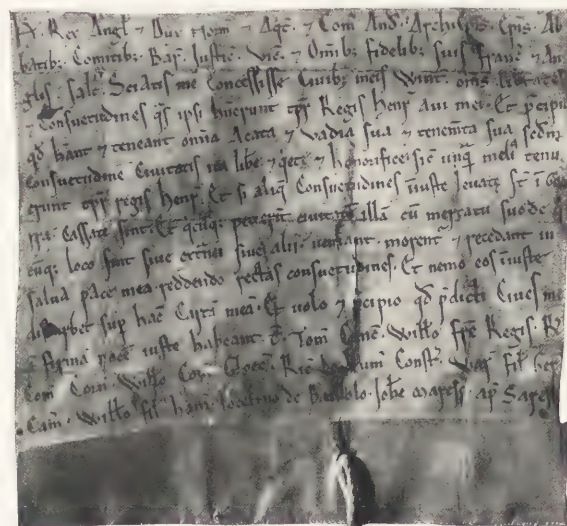 H. Rex Angl' ⁊ Dux Norm' ⁊ Aqit' ⁊ Com' And' Archiepis' Epis' Ab
batib; Comitib; Bar' Justic' Vic' ⁊ Omib; fidelib; suis franc' ⁊ An
glis salt' Sciatis me Concessisse Civib; meis Wint' oms libtates
Consuetudines qs ipsi habuerunt tpr Regis henr' Avi mei Et pcipio
qd hant ⁊ teneant omnia Acata ⁊ Vadia sua ⁊ tenemta sua sedm
Consuetudine Civitatis ita libe ⁊ qete ⁊ honorifice sic unq meli tenu
erunt tpr regis henr' Et si aliq Consuetudines iniuste levate st i
rra Cassate sint Et petierit civitate illa cu mercatu suo de
euq; loco sint sive extnei sive alii veniant morent' ⁊ recedant in
salva pace mea reddendo rectas consuetudines Et nemo eos iniuste
disturbet sup hac Carta mea Et volo ⁊ pcipio qd pdicti Cives mei
firma pace iuste habeant T Tom' Canc' Willo fre Regis
Com' Corn' Willo Com' Ric' Const' War' fil' Ger'
Cam' Willo fil' ham' Jocelino de Johe Maress' ap' Sares